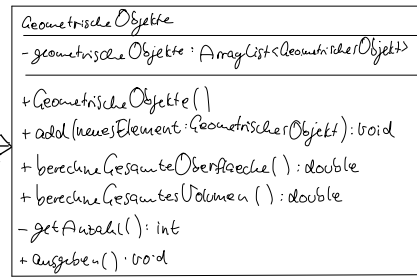 Geometrische Objekte
- geometrische Objekte : ArrayList<GeometrischesObjekt>
+ Geometrische Objekte ()
+ add (neuesElement : GeometrischesObjekt) : void
+ berechneGesamteOberflaeche () : double
+ berechneGesamtesVolumen () : double
- getAnzahl () : int
+ ausgeben () : void